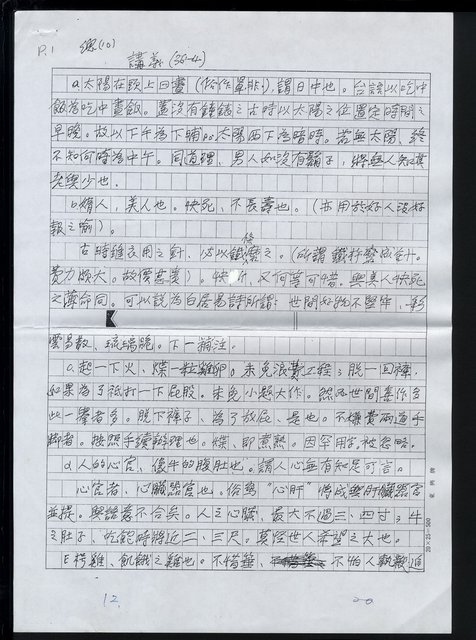 P.1 (10)
講義 (38-4)
a.太陽在頭上曰晝 謂日中也。台語以吃中
飯為吃中晝飯。蓋沒有鐘錶之古時以太陽之位置定時間之
早晚。故以下午為下晡。太陽西下為暗時。若無太陽、終
不知何時為中午。同道理、男人如沒有鬍子，將無人知其
老與少也。
b.婧人，美人也。快死、不長壽也。(亦用於好人沒好
報之喻)。
古時縫衣用之針、必以鐵磨之。(所謂鐵杵磨成針。
費力頗大。故價甚貴)。快 又何等可惜。與美人快死
之薄命同。可以說為白居易詩所謂：世間好物不堅牢、彩
雲易散、琉璃脆。下一補注。
c.起一下火、煠一粒雞卵。未免浪費工程；脫一回褲、
如果為了祇打一下屁股。未免小題大作。然而世間
此一舉者多。脫下褲子、為了放屁、是也。不嫌費兩道手
腳者。按照手續辦理也。煠、即煮熟。因罕用字被忽略。
d.人的心官、傻牛的腹肚也。謂人心無有知足可言。
心官者、心臟器官也。俗寫"心肝"將成與肝臟器官
並提。與諺意不合矣。人之心臟、最大不過三、四寸；牛
之肚子、吃飽時將近二、三尺。莫怪世人希望之大也。
E 雞、飢餓之雞也。不惜箠、 不怕人 追
20×25=500
12
20